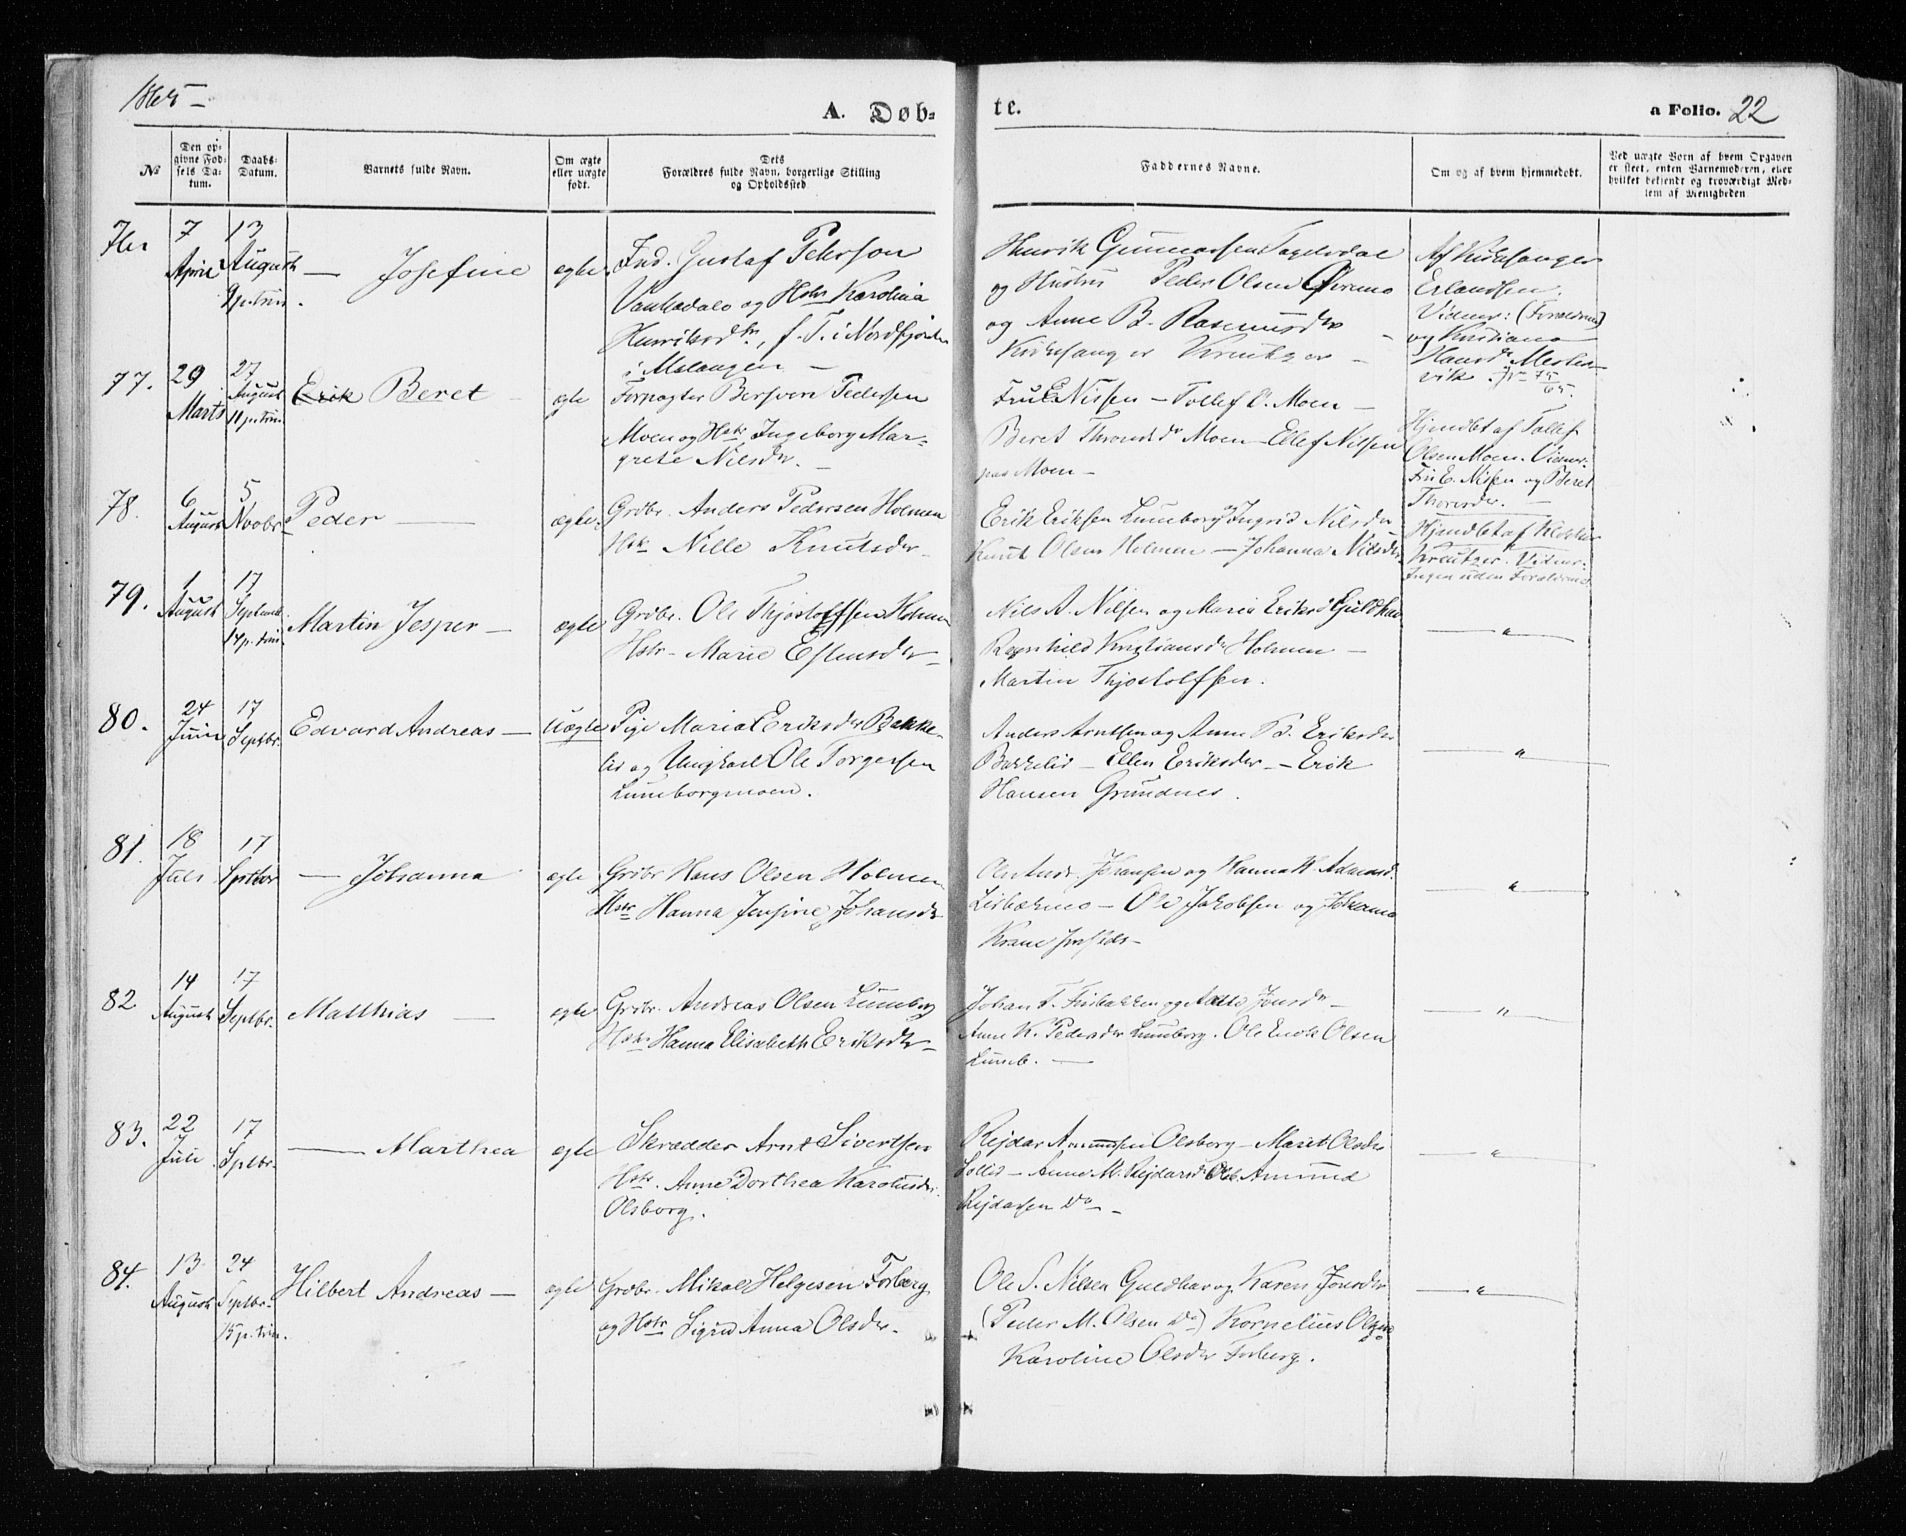 1865
A. Døb-
te.
a Folio. 22
No
Den op-
givne Fød-
sels Da-
tum.
Daabs-
Datum.
Barnets fulde Navn.
Om ægte
eller uægte
født.
Dets
Forældres fulde Navn, borgerlige Stilling
og Opholdssted
Faddernes Navne.
Om og af hvem hjemmedøbt.
Ved uægte Børn af hvem Opgaven
er skeet, enten Barnemoderen, eller
hvilket bekjendt og troværdigt Med-
lem af Menigheden
76
7 April
13 August
9 p. trin.
— Josefine
ægte
Ind. Gustaf Peterson
og Hstr Karolina
f. T. i Nordfjorden
i Malangen —
Henrik Gunnarsen
og Hustru Peder Olsen Øvremo
og Anne B. Rasmusdr
Kirkesanger Kreutzer —
Af Kirkesanger
Erlandsen.
Vidner: (Forældrene)
og Kristiane
Hansdr
77.
29 Marts
27 August
11 p. trin
Erik Beret
ægte
Forpagter Bersven Pedersen
Moen og Hstr Ingeborg Mar-
grete Nilsdr. —
Fru E. Nissen — Tollef O. Moen —
Beret Thronsdr Moen — Ellef Nilsen
paa Moen —
Hjemdbt af Tollef
Olsen Moen. Vidner:
Fru E. Nissen og Beret
78.
6 August
5 Novbr
Peder —
ægte
Grdbr. Anders Pedersen Holmen
Hstr Nille Knutsdr —
Erik Eriksen Luneborg Ingrid Nilsdr
Knut Olsen Holmen — Johanna Nilsdr
Hjemdbt af
Kreutzer. Vidner:
Ingen uden Forældrene
79.
1 August
17 Septemb.
14 p. trin
Martin Jesper —
ægte
Grdbr. Ole Thjostolfsen Holmen
Hstr — Marie Estensdr —
Nils A. Nilsen og Maria Eriksd Guldhav
Ragnhild Kristiansdr Holmen —
Martin Thjostolfsen.
— " —
80.
24 Juni
17 Septbr.
Edvard Andreas —
Uægte
Pige Maria Eriksdr Bakke-
lid og Ungkarl Ole Torgersen
Luneborgmoen.
Anders Arntsen og Anne B. Eriksdr
Bakkelid — Ellen Eriksdr — Erik
Hansen Grundnes.
— " —
81.
18 Juli
17 Septbr
— Johanna
ægte
Grdbr Hans Olsen Holmen
Hstr Hanna Jensine Johansdr
Johansen og Hanna H. Adamsd.
— Ole Jakobsen og Johanna
— " —
82
14 August
17 Septbr.
Matthias —
ægte
Grdbr. Andreas Olsen Luneborg
Hstr Hanna Elisabeth Eriksdr —
Johan T. og Jonsdr —
Anne K. Pedersdr Luneborg. Ole Enok Olsen
Luneb. —
— " —
83.
22 Juli
17 Sptbr.
— Marthea
ægte
Skrædder Arnt Sivertsen
Hstr. Anne Dorthea Karolusdr.
Olsborg.
Rejdar Amundsen Olsborg — Maret Olsdr
— Anne M. Rejdarsdr Olsb. Amund
Rejdarsen Do —
— " —
84.
13 August
24 Septbr.
15 p. trin.
Hilbert Andreas —
ægte
Grdbr. Mikal Helgesen Forberg
og Hstr Sigrid Anna Olsdr.
Ole S. Nilsen Guldhav og Karen Jonsdr
(Peder M. Olsen Do) Kornelius Olsen
Karoline Olsdr Forberg.
— " —